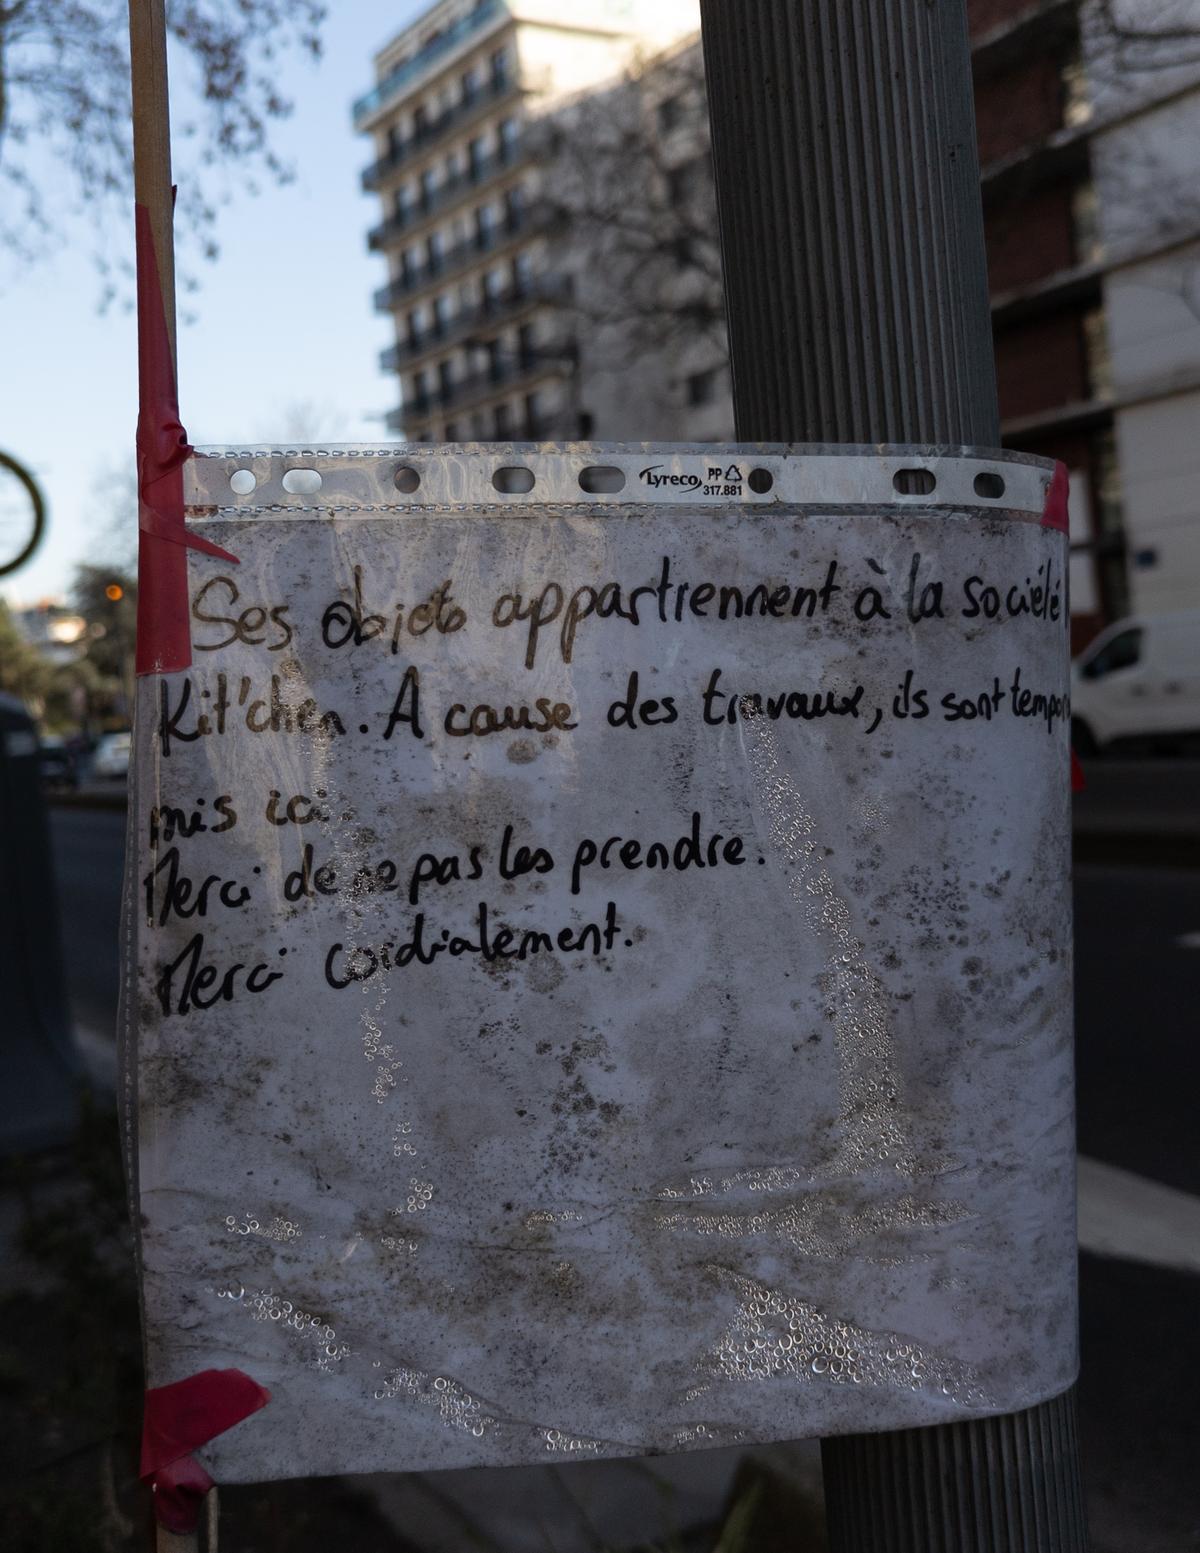 Lyreco PP
317.881
Ses objets appartiennent à la société
Kit'chen. A cause des travaux, ils sont tempo
mis ici.
Merci de ne pas les prendre.
Merci cordialement.